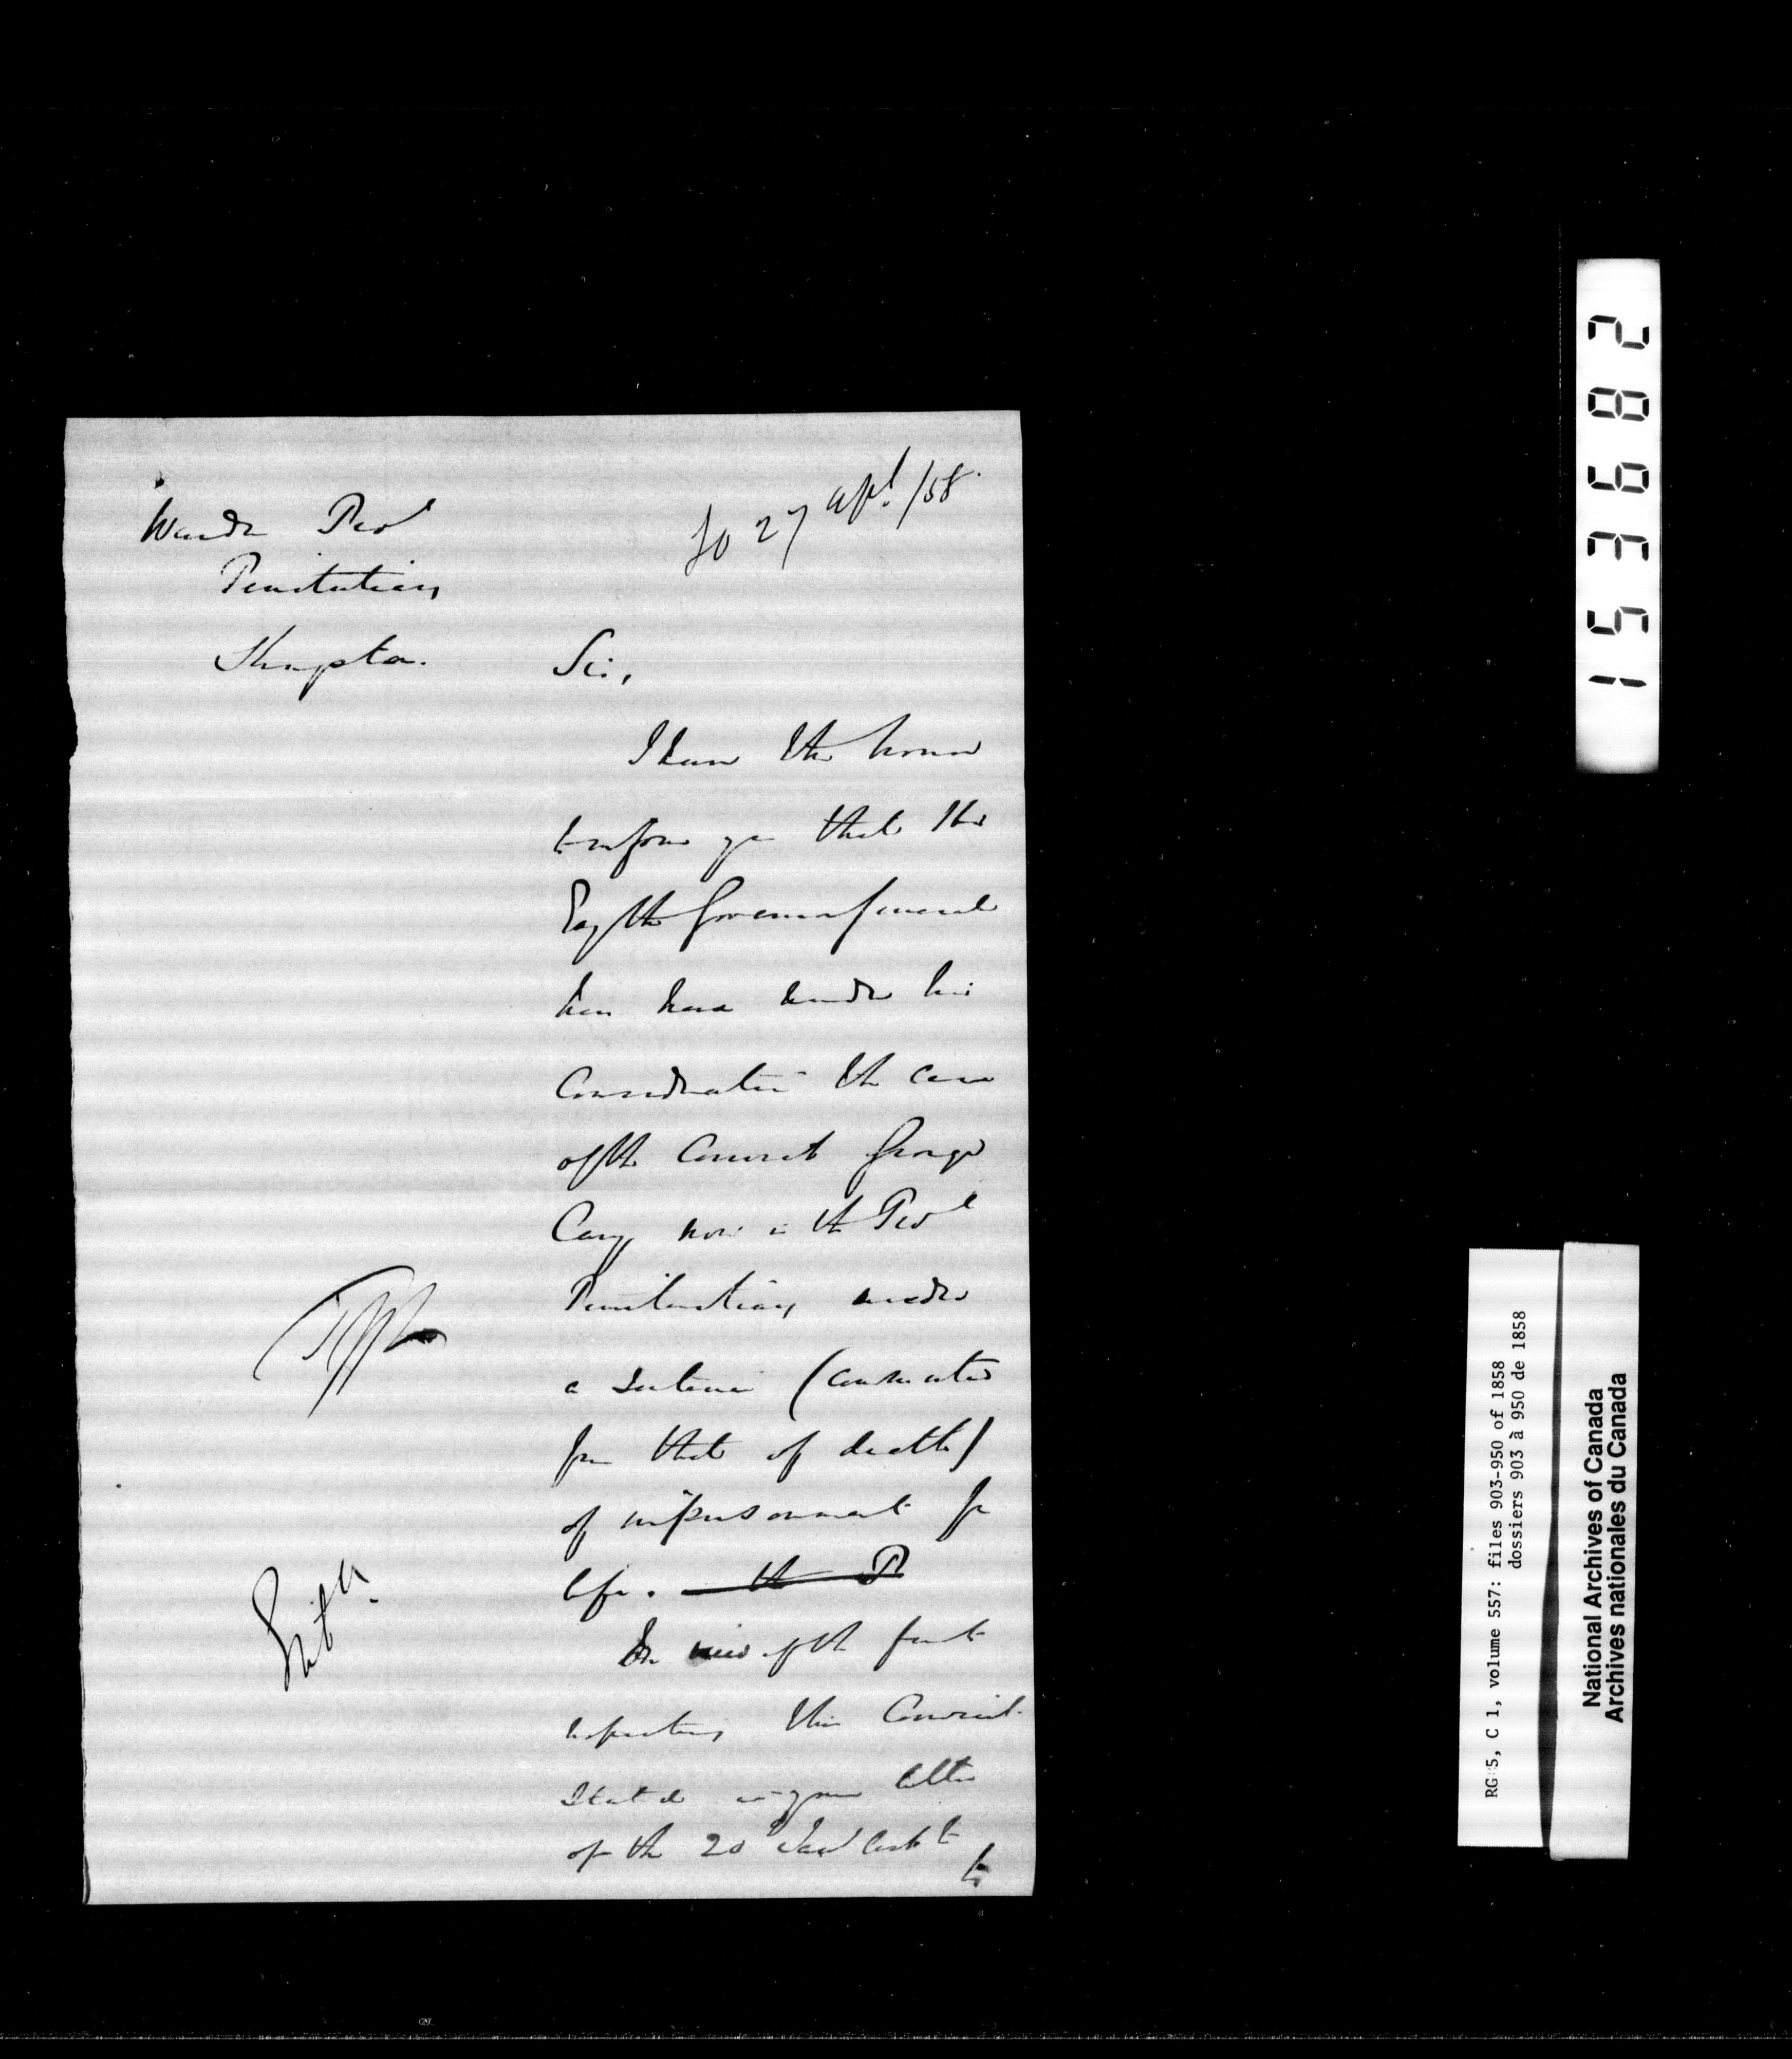 Warden Prov<sup>l</sup>
Penitentiary
Kingston.
To 27 Apl. /58.
Sir,
I have the honor
to inform you that His
Excy the Governor General
has had under his
Consideration the case
of the Convict George
Cary now in the Prov<sup>l</sup>
Penitentiary under
a sentence (commuted
from that of death)
of imprisonment for
life. the P
In view of the facts
respecting this Convict
stated in your letter
of the 20
to
153682
RG 5, C 1, volume 557: files 903-950 of 1858
dossiers 903 à 950 de 1858
National Archives of Canada
Archives nationales du Canada